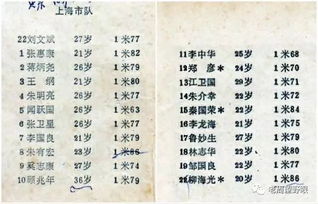 上海市队
22刘文斌 27岁 1米77
1张惠康 21岁 1米82
2蒋炳尧 29岁 1米79
3王纲 21岁 1米80
4朱明亮 27岁 1米77
5闻跃国 21岁 1米
6张卫星 27岁 1米
7李国良 21岁 1米79
8朱有宏 23岁
9奚志康 21岁 1米74
10顾兆年 36岁 1米79
11李中华 25岁 1米68
12郑彦* 24岁 1米70
13江卫国 21岁 1米
14朱介章 22岁 1米72
15秦国荣* 22岁 1米84
16李龙海 21岁 1米75
17鲁妙生 29岁 1米71
18林志华 22岁 1米80
19邹国良 22岁 1米77
21柳海光* 20岁 1米86